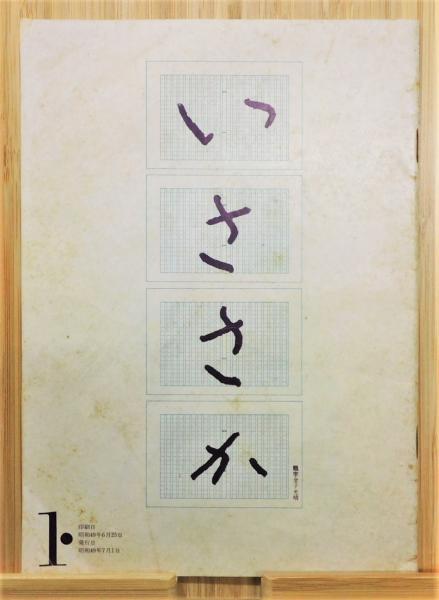 いささか
1・
印刷日
昭和49年6月25日
発行日
昭和49年7月1日